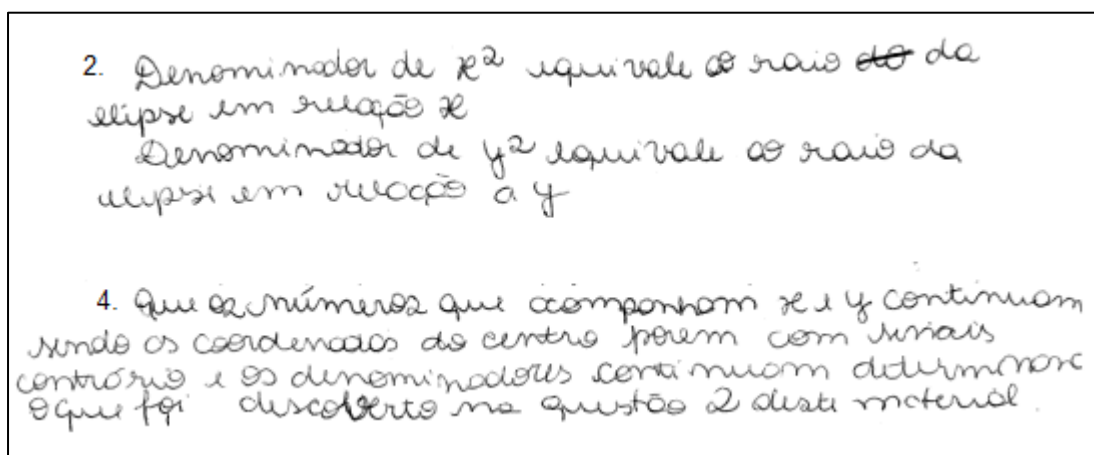 2. Denominador de x² equivale ao raio do da
elipse em relação x
Denominador de y² equivale ao raio da
elipse em relação a y
4. Que os números que acompanham x e y continuam
sendo as coordenadas do centro porem com sinais
contrário e os denominadores continuam determinare
o que foi descoberto na questão 2 deste material.